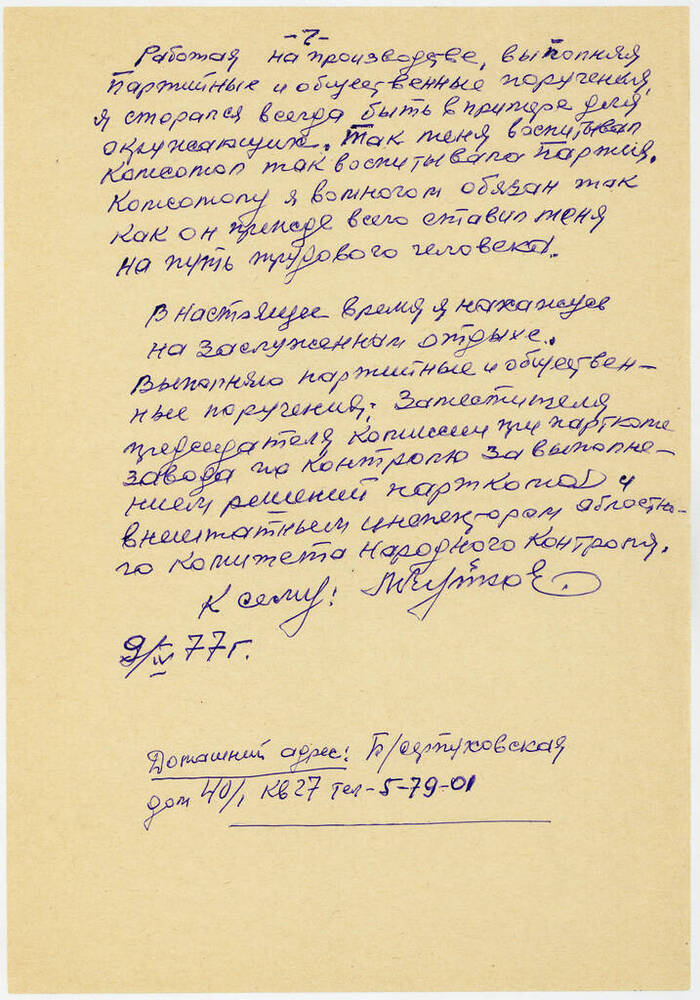 -7-
Работая на производстве, выполняя
партийные и общественные поручения,
я старался всегда быть в примере для
окружающих. Так меня воспитывал
Комсомол так воспитывала Партия.
Комсомолу я вомногом обязан так
как он прежде всего ставил меня
на путь трудового человека.
В настоящее время я нахажусь
на заслуженнам отдыхе.
Выполняю партийные и обществен-
ные поручения: Заместителя
председателя Комиссии при парткоме
завода по контролю за выполне-
нием решений парткома и
внештатным инспектором абластно-
го комитета Народного Контроля.
К сему:
9/IV 77 г.
Домашний адрес: Б/серпуховская
дом 40/1 кв 27 тел-5-79-01